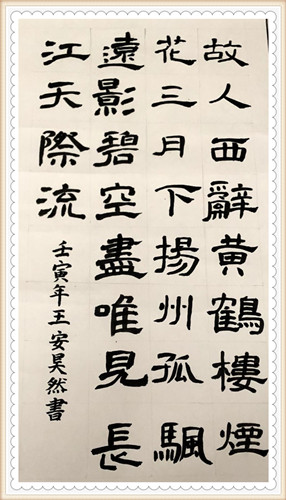 故人西辭黄鶴樓煙
花三月下揚州孤颿
遠影碧空盡唯見長
江天際流
壬寅年王安昊然書